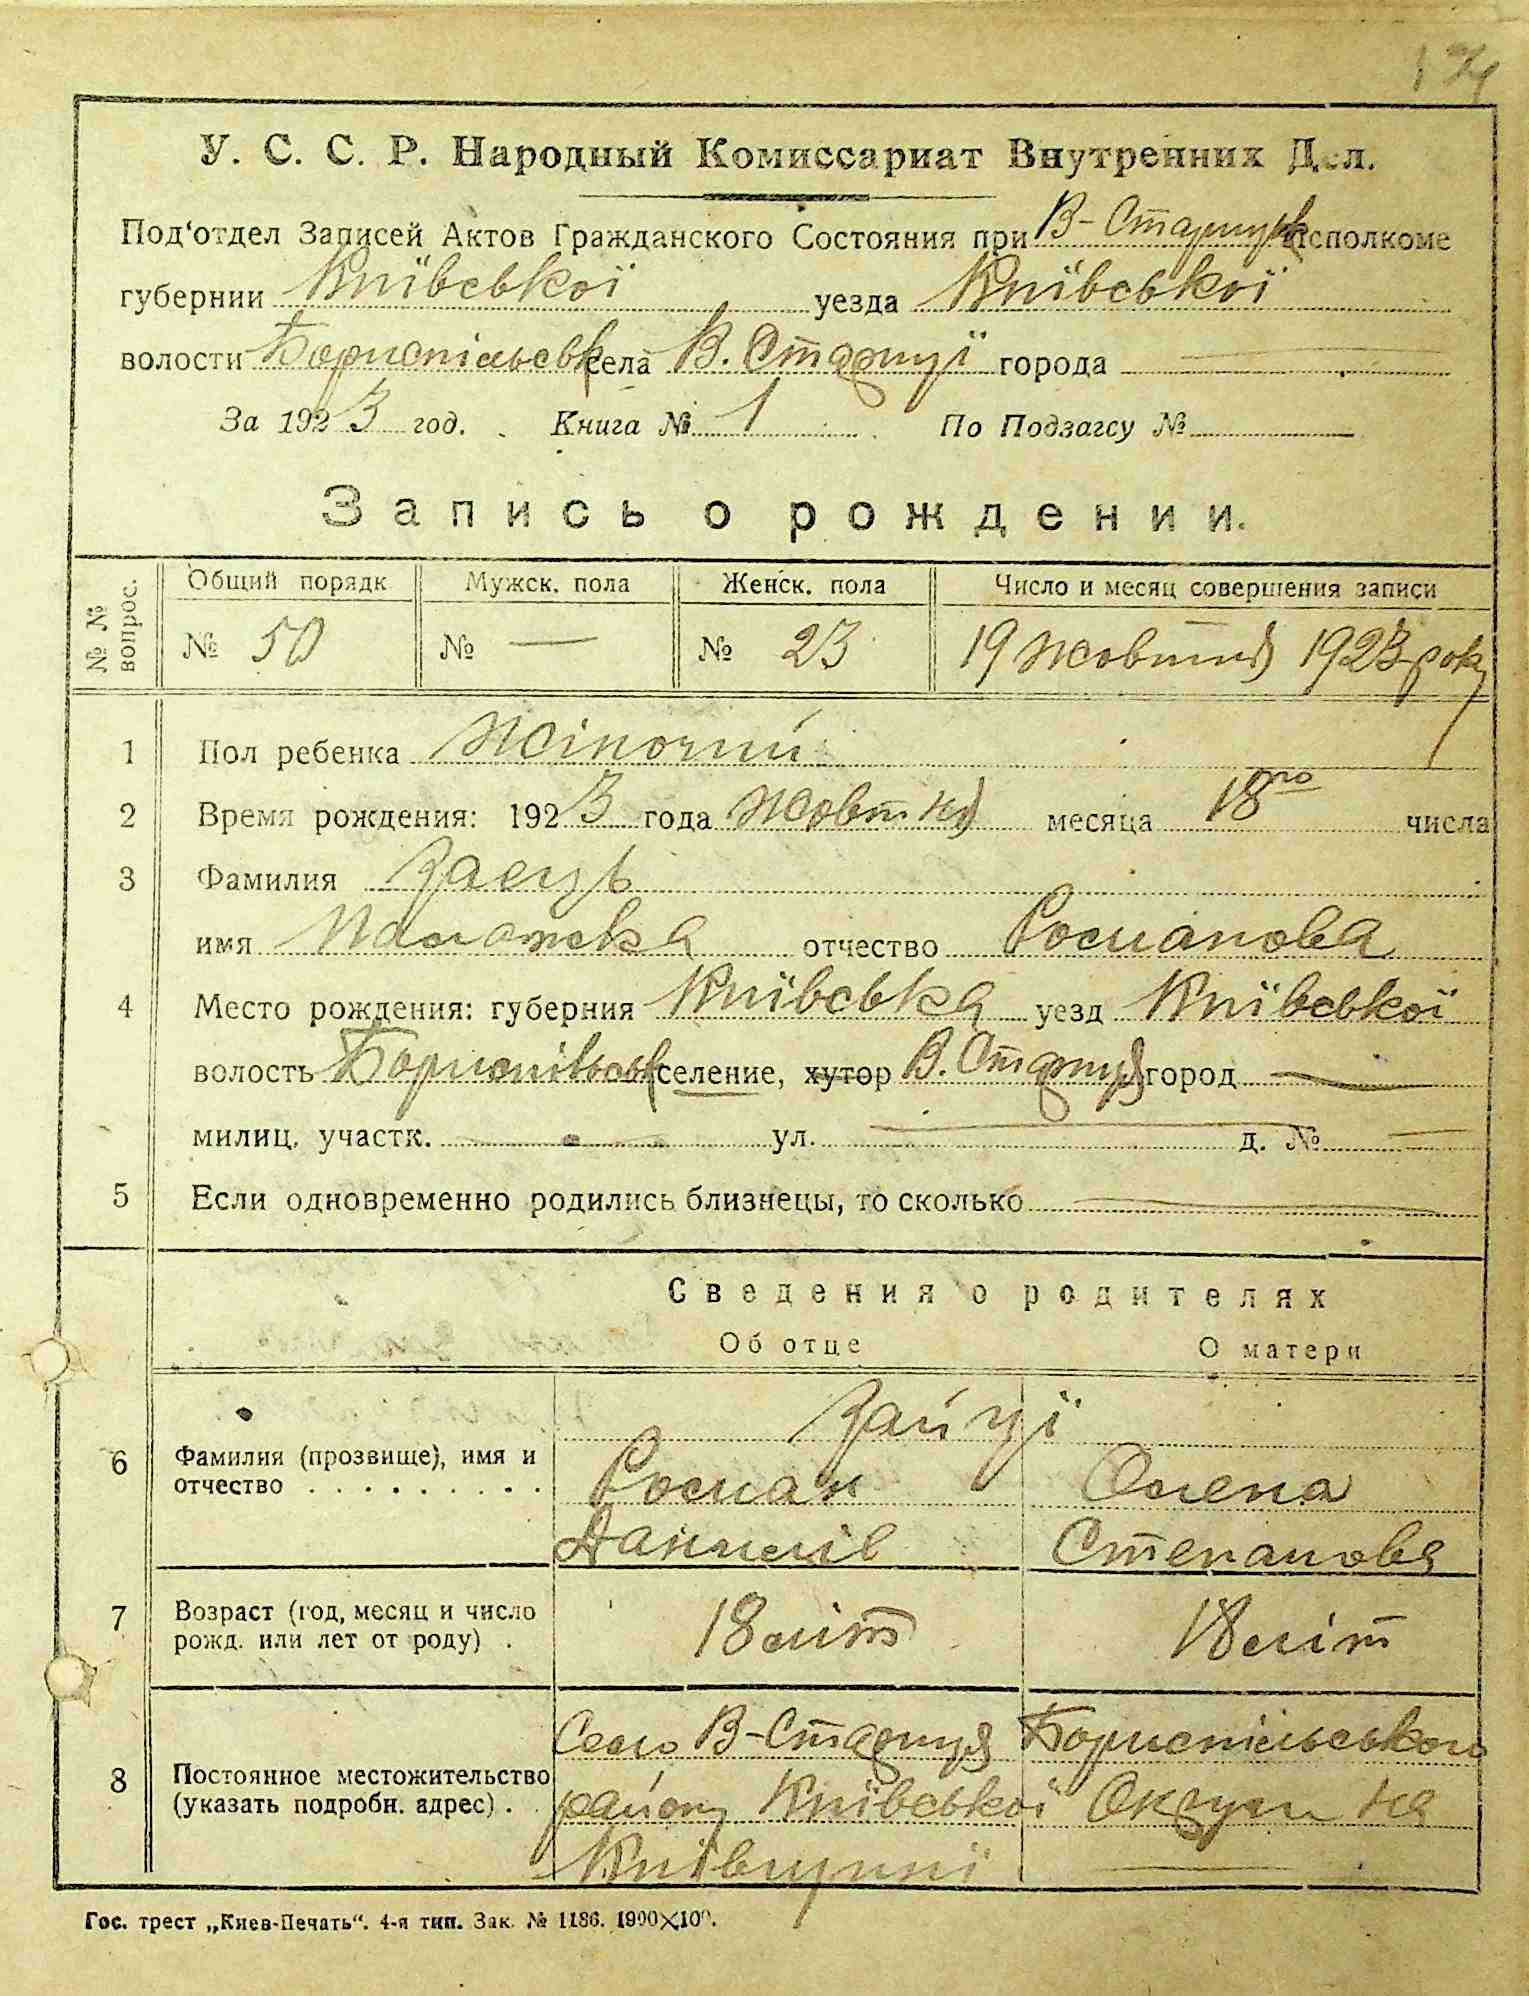 У. С. С. Р. Народный Комиссариат Внутренних Дел.
Под‘отдел Записей Актов Гражданского Состояния при В-Старицьк исполкоме
губернии Київської уезда Київської
волости Бориспільськ села В. Стариці города —
За 1923 год. Книга № 1 По Подзагсу №
Запись о рождении.
№ № вопрос. Общий порядк Мужск. пола Женск. пола Число и месяц совершения записи
№ 50 № — № 23 19 жовтня 1923 року
1 Пол ребенка Жіночий
2 Время рождения: 1923 года жовтня месяца 18го числа
3 Фамилия Заєць
имя Палажка отчество Романова
4 Место рождения: губерния Київська уезд Київської
волость Бориспільськ селение, хутор В. Стариця город —
милиц. участк. — ул. — д. № —
5 Если одновременно родились близнецы, то сколько —
Сведения о родителях
Об отце О матери
Зайці
6 Фамилия (прозвище), имя и отчество . . . . . . . . . Роман Олена
Данилів Степанова
7 Возраст (год, месяц и число рожд. или лет от роду) . 18 літ 18 літ
8 Постоянное местожительство (указать подробн. адрес) . . Село В-Стариця Бориспільського
району Київської Округи на
Київщині —
Гос. трест „Киев-Печать“. 4-я тип. Зак. № 1186. 1900×100.